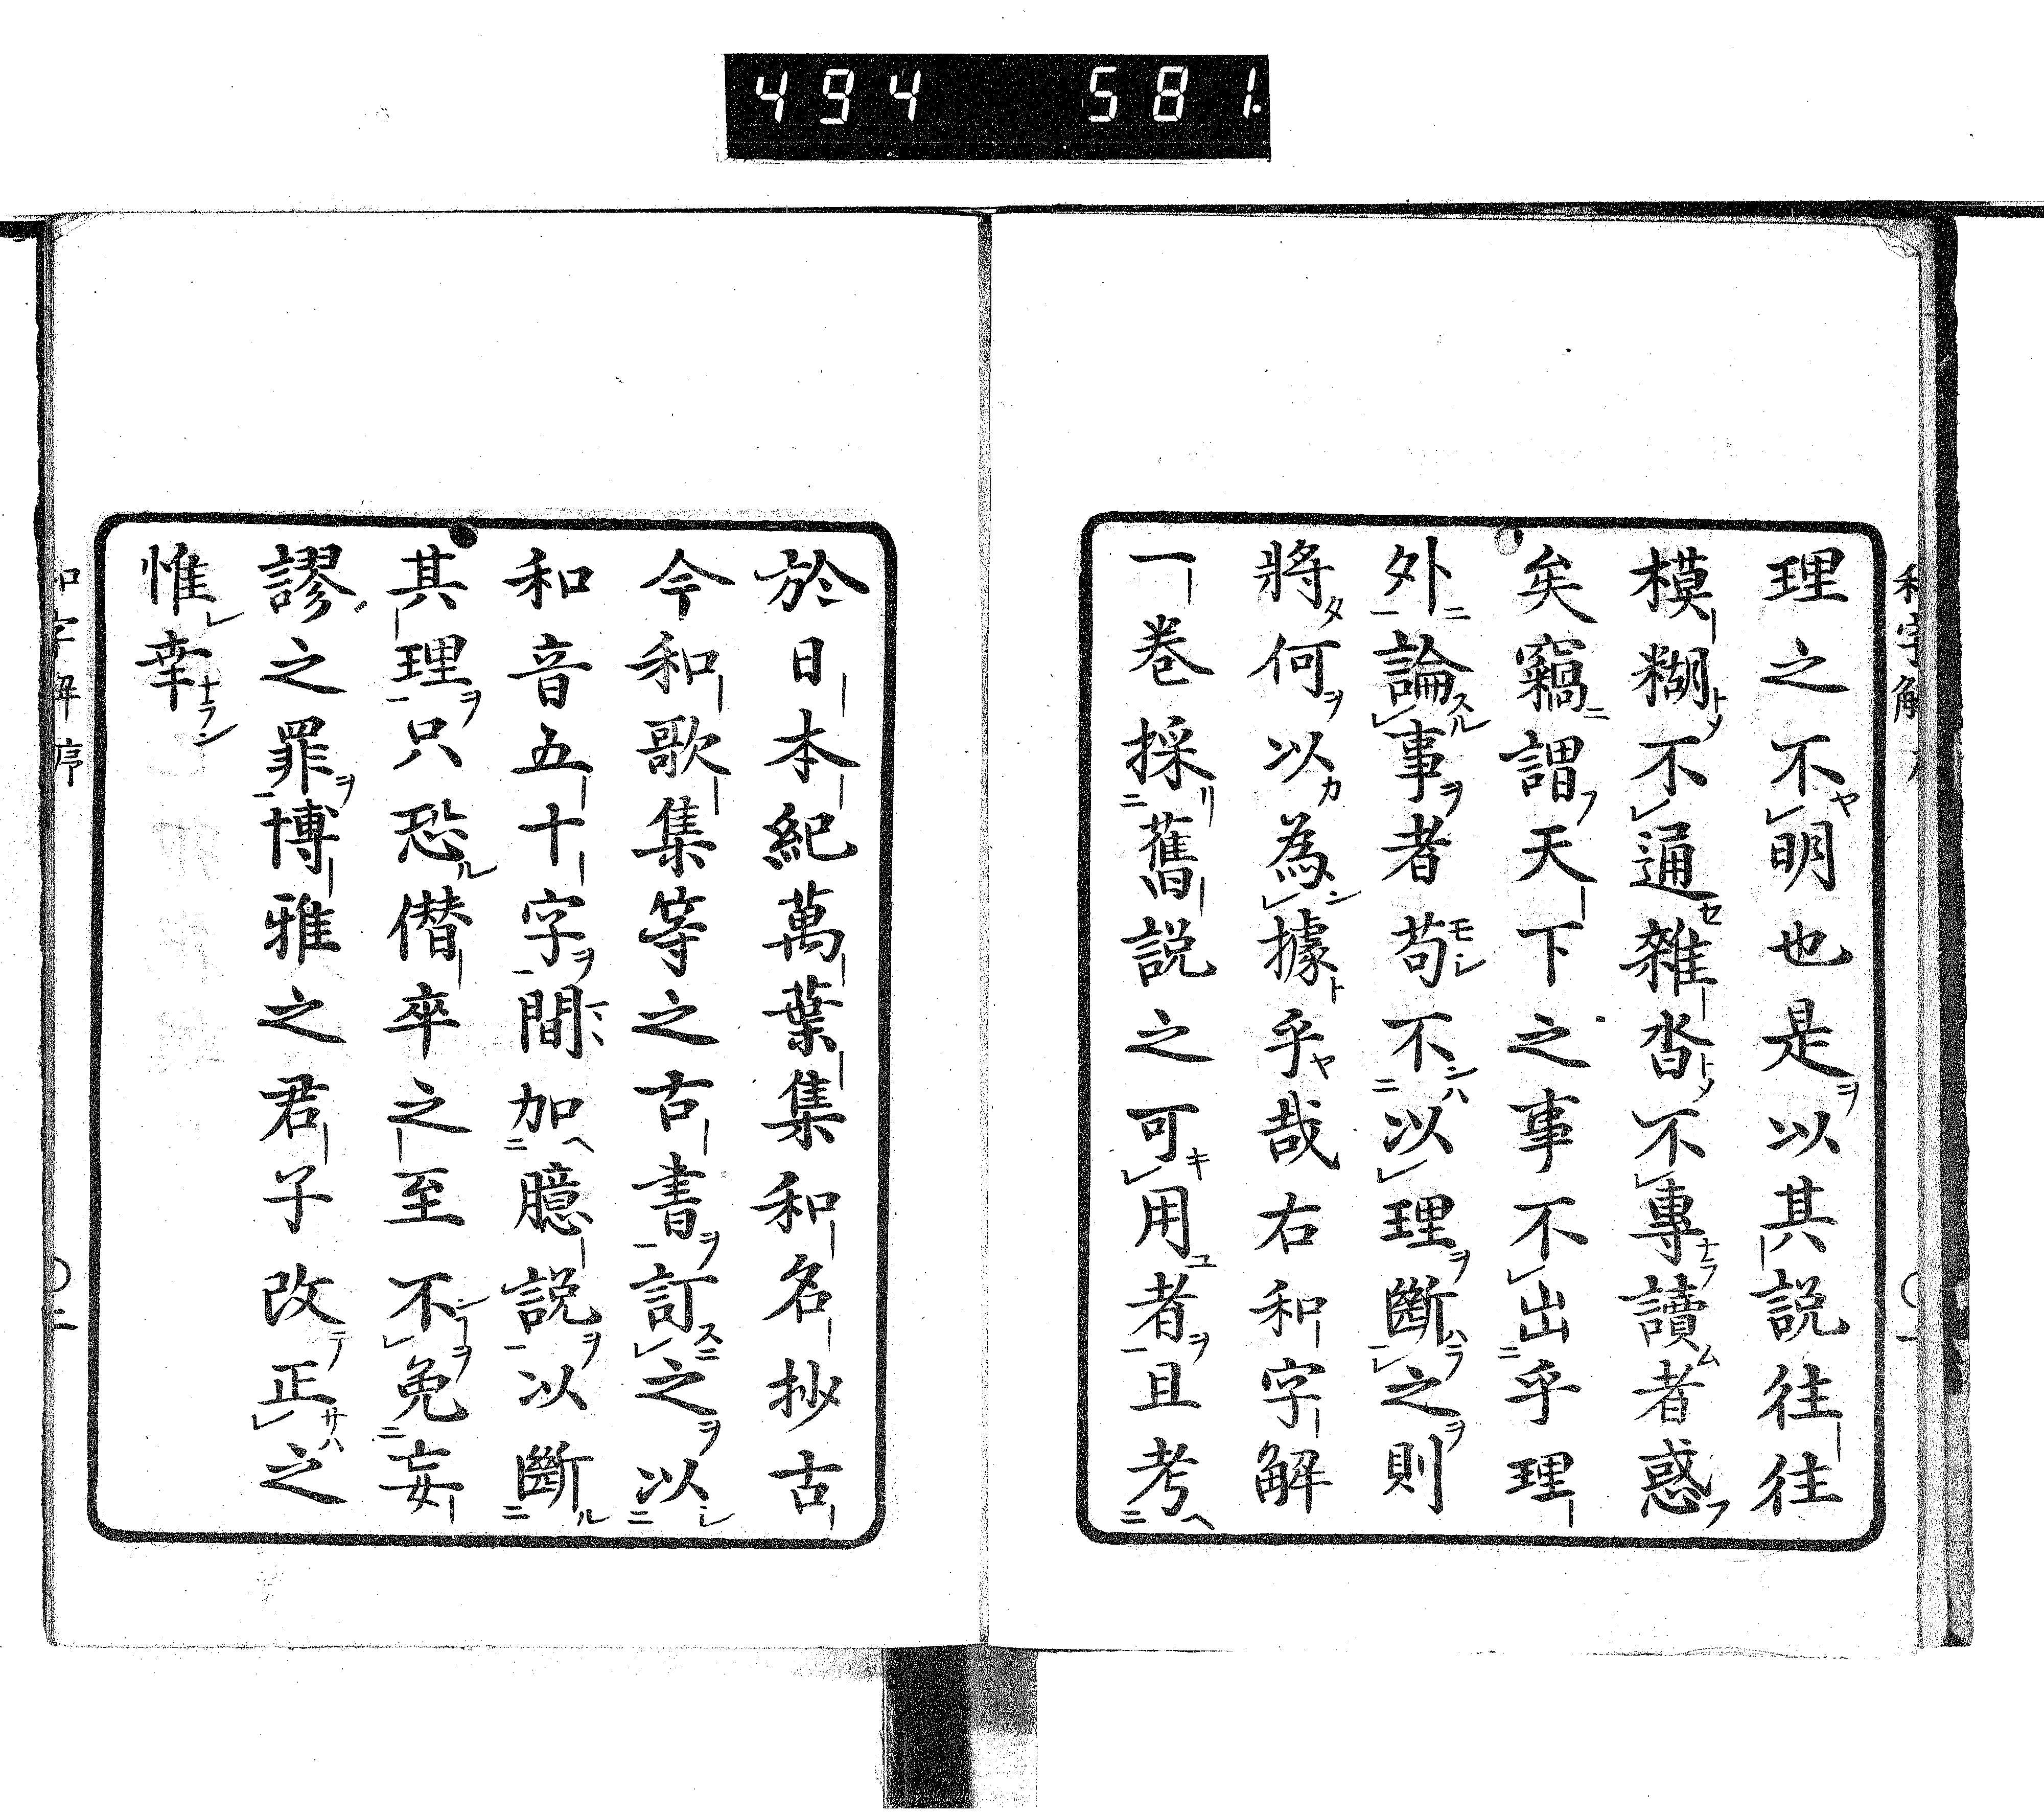 494 581.
理之不明也是以其説往往
模糊不通雜沓不專讀者惑
矣竊謂天下之事不出乎理
外論事者苟不以理斷之則
將何以為據乎哉右和字解
一巻採舊説之可用者且考
於日本紀萬葉集和名抄古
今和歌集等之古書訂之以
和音五十字間加臆説以斷
其理只恐僭卒之至不免妄
謬之罪博雅之君子改正之
惟幸
和字解序
二